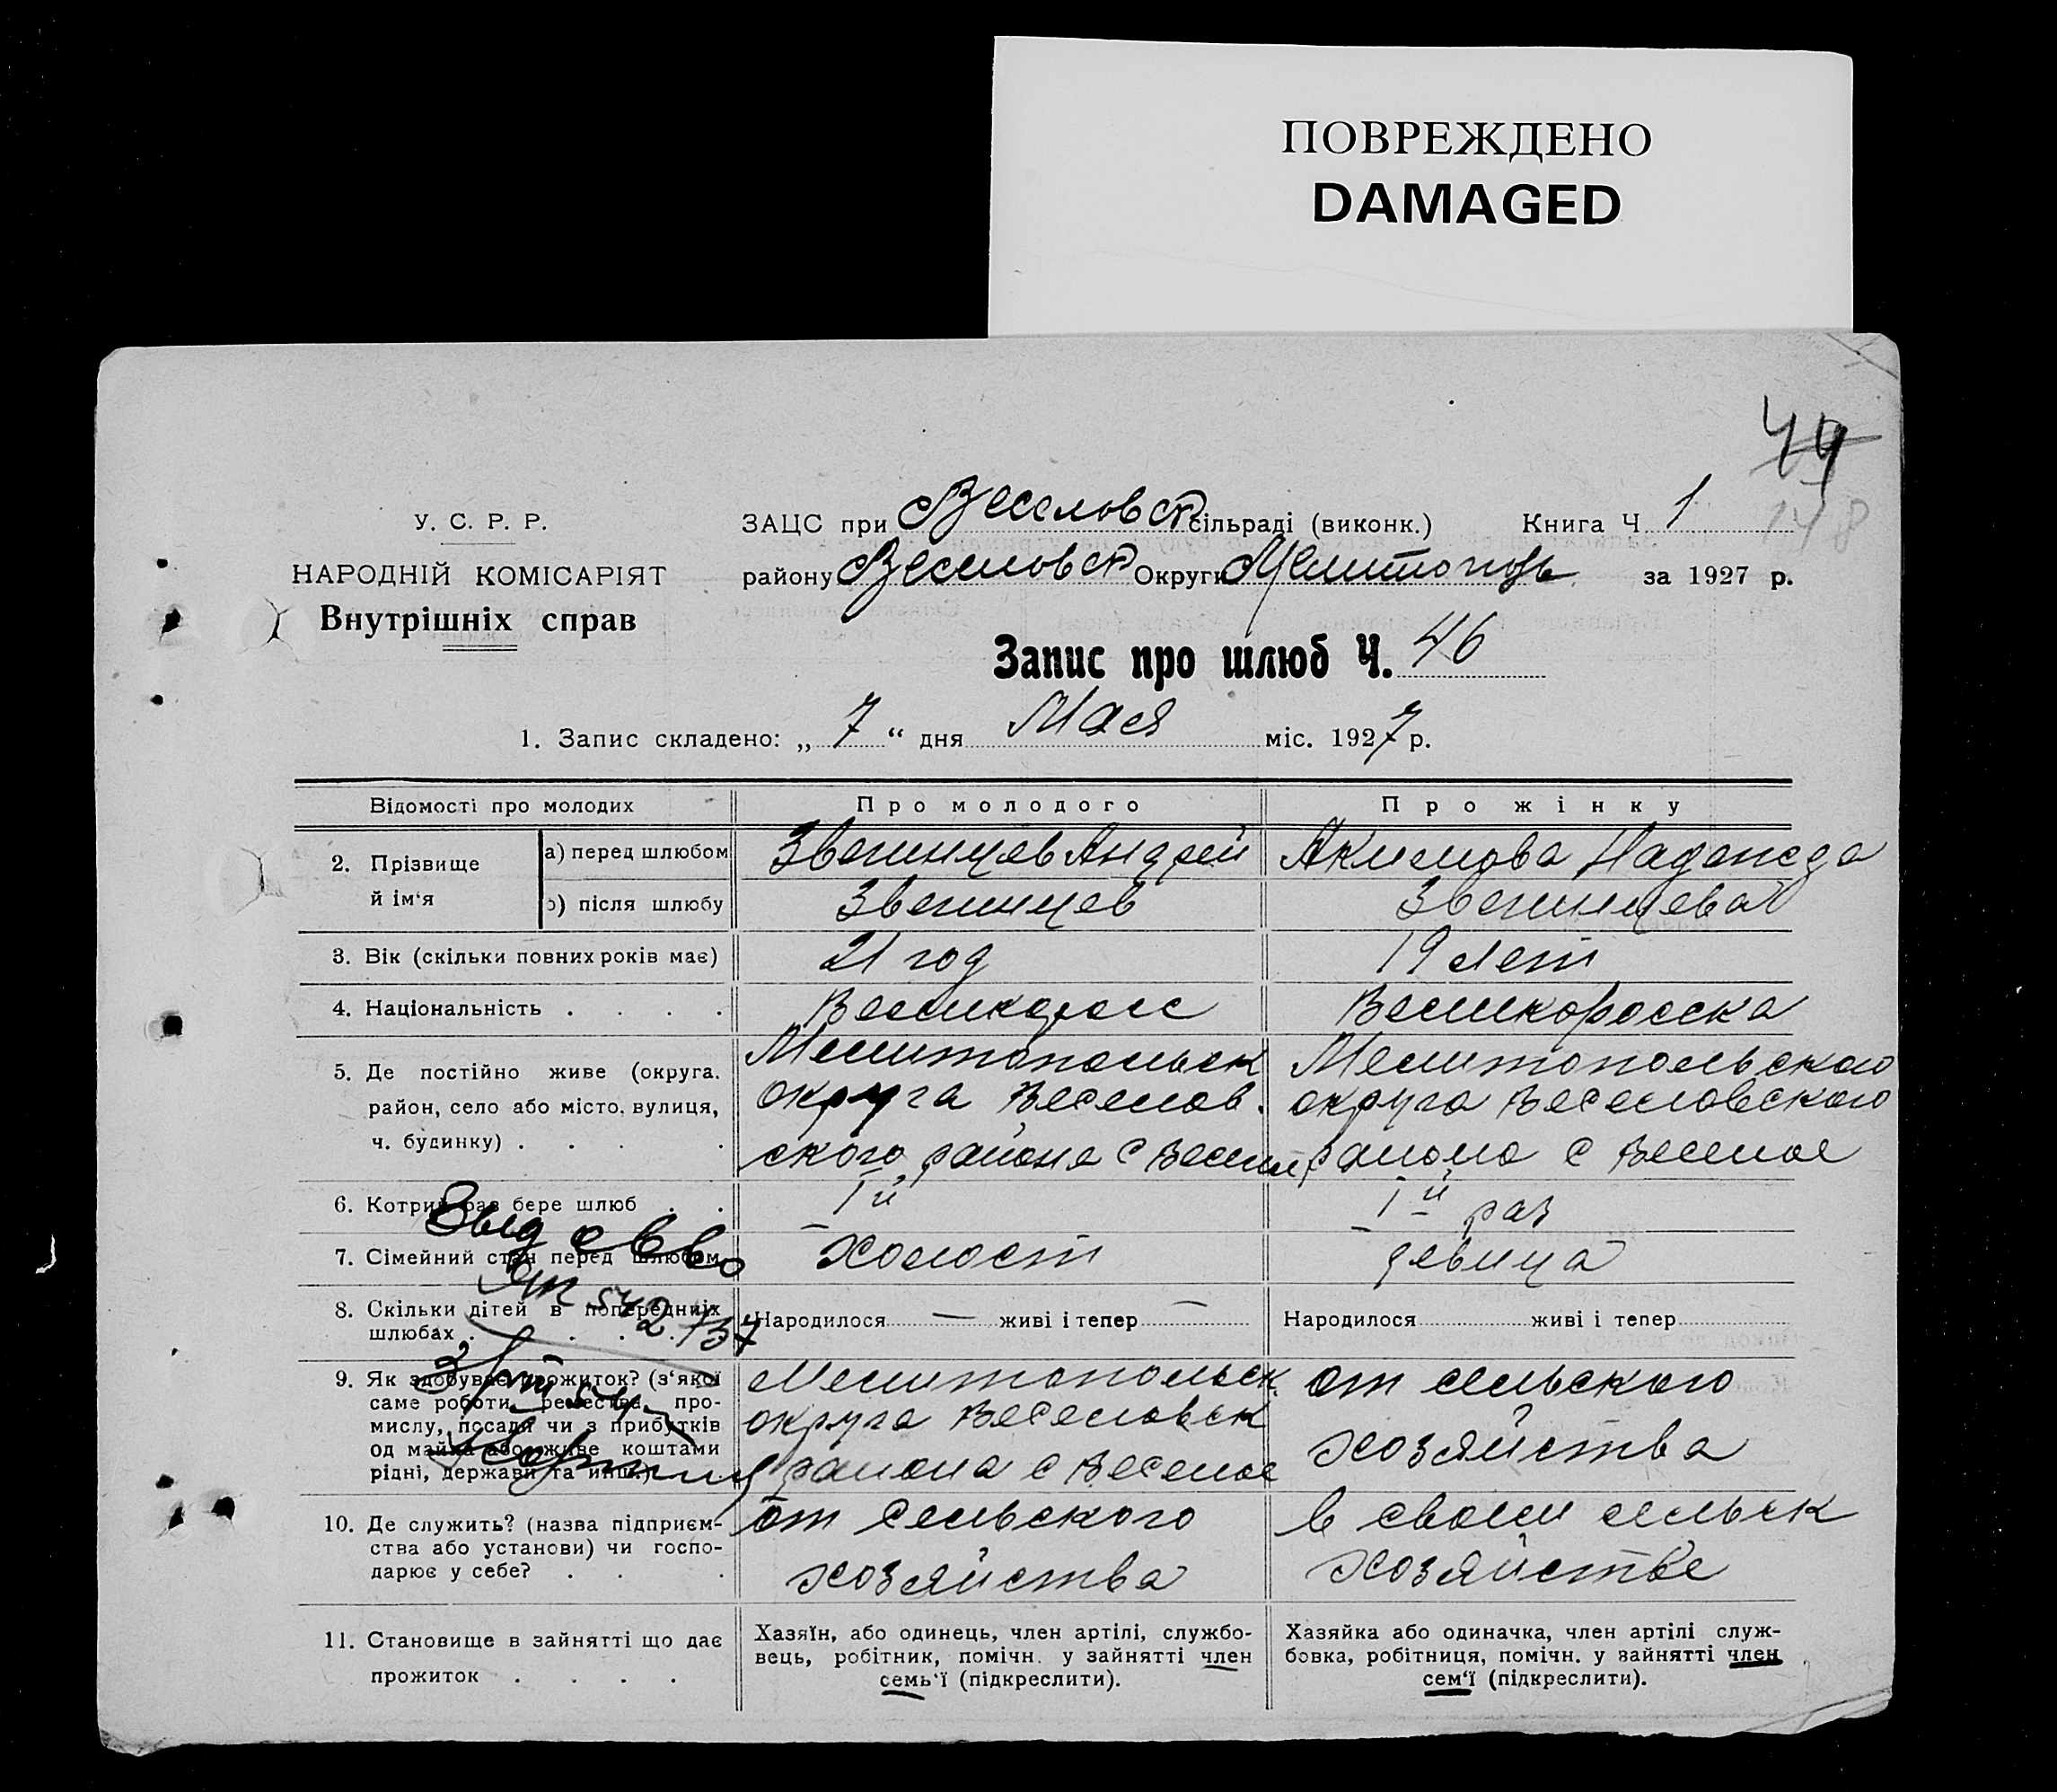 ПОВРЕЖДЕНО
DAMAGED
44
148
У. С. Р. Р.
НАРОДНІЙ КОМІСАРІЯТ
Внутрішніх справ
ЗАЦС при Веселовск сільраді (виконк.) Книга Ч 1
району Веселовск Округи Мелитополь за 1927 р.
Запис про шлюб Ч. 46
1. Запис складено: „ 7 “ дня Мая міс. 1927 р.
Відомості про молодих Про молодого Про жінку
2. Прізвище й ім‘я
а) перед шлюбом Звегинцев Андрей Акимова Надежда
б) після шлюбу Звегинцев Звегинцева
3. Вік (скільки повних років має) 21 год 19 лет
4. Національність . . . . Великоросс Великоросска
5. Де постійно живе (округа, Мелитопольск Мелитопольского
район, село або місто, вулиця, округа Веселов. округа Веселовского
ч. будинку) . . . . ского района с Веселое района с Веселое
6. Котрий раз бере шлюб . . I й I й раз
7. Сімейний стан перед шлюбом холост девица
8. Скільки дітей в попередніх Народилося — живі і тепер — Народилося живі і тепер
шлюбах . . . . .
Выд свво
9. Як здобуває прожиток? (з‘якої Мелитопольск от сельского
саме роботи, ремества, про- округа Веселовск хозяйства
мислу, посади чи з прибутків района с Веселое
од майна або живе коштами
рідні, держави та инш.)
10. Де служить? (назва підприєм- от сельского в своем сельск
ства або установи) чи госпо- хозяйства хозяйстве
дарює у себе? . . .
11. Становище в зайнятті що дає
прожиток . . . .
Хазяїн, або одинець, член артілі, службо-
вець, робітник, помічн. у зайнятті член
семь‘ї (підкреслити).
Хазяйка або одиначка, член артілі служ-
бовка, робітниця, помічн. у зайнятті член
сем‘ї (підкреслити).